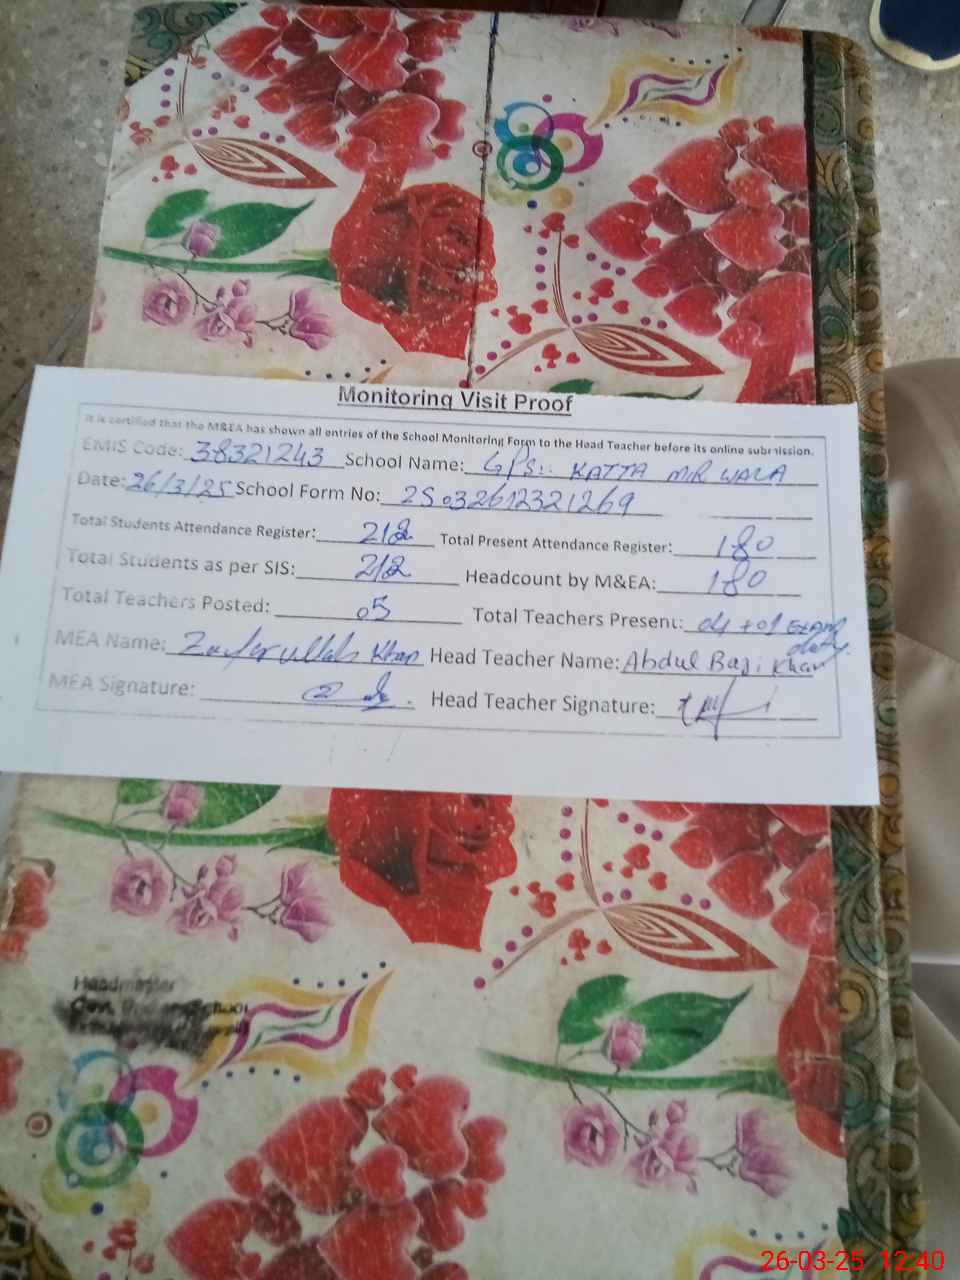 Monitoring Visit Proof
It is certified that the M&EA has shown all entries of the School Monitoring Form to the Head Teacher before its online submission.
EMIS Code: 38321243 School Name: GPS:. KATTA MR WALA
Date: 26/3/25 School Form No: 25032612321269
Total Students Attendance Register: 212 Total Present Attendance Register: 180
Total Students as per SIS: 212 Headcount by M&EA: 180
Total Teachers Posted: 05 Total Teachers Present: 04 + 01 Exam duty.
MEA Name: Zafarullah Khan Head Teacher Name: Abdul Baqi Khan
MEA Signature: Head Teacher Signature:
Headmaster
26-03-25 12:40